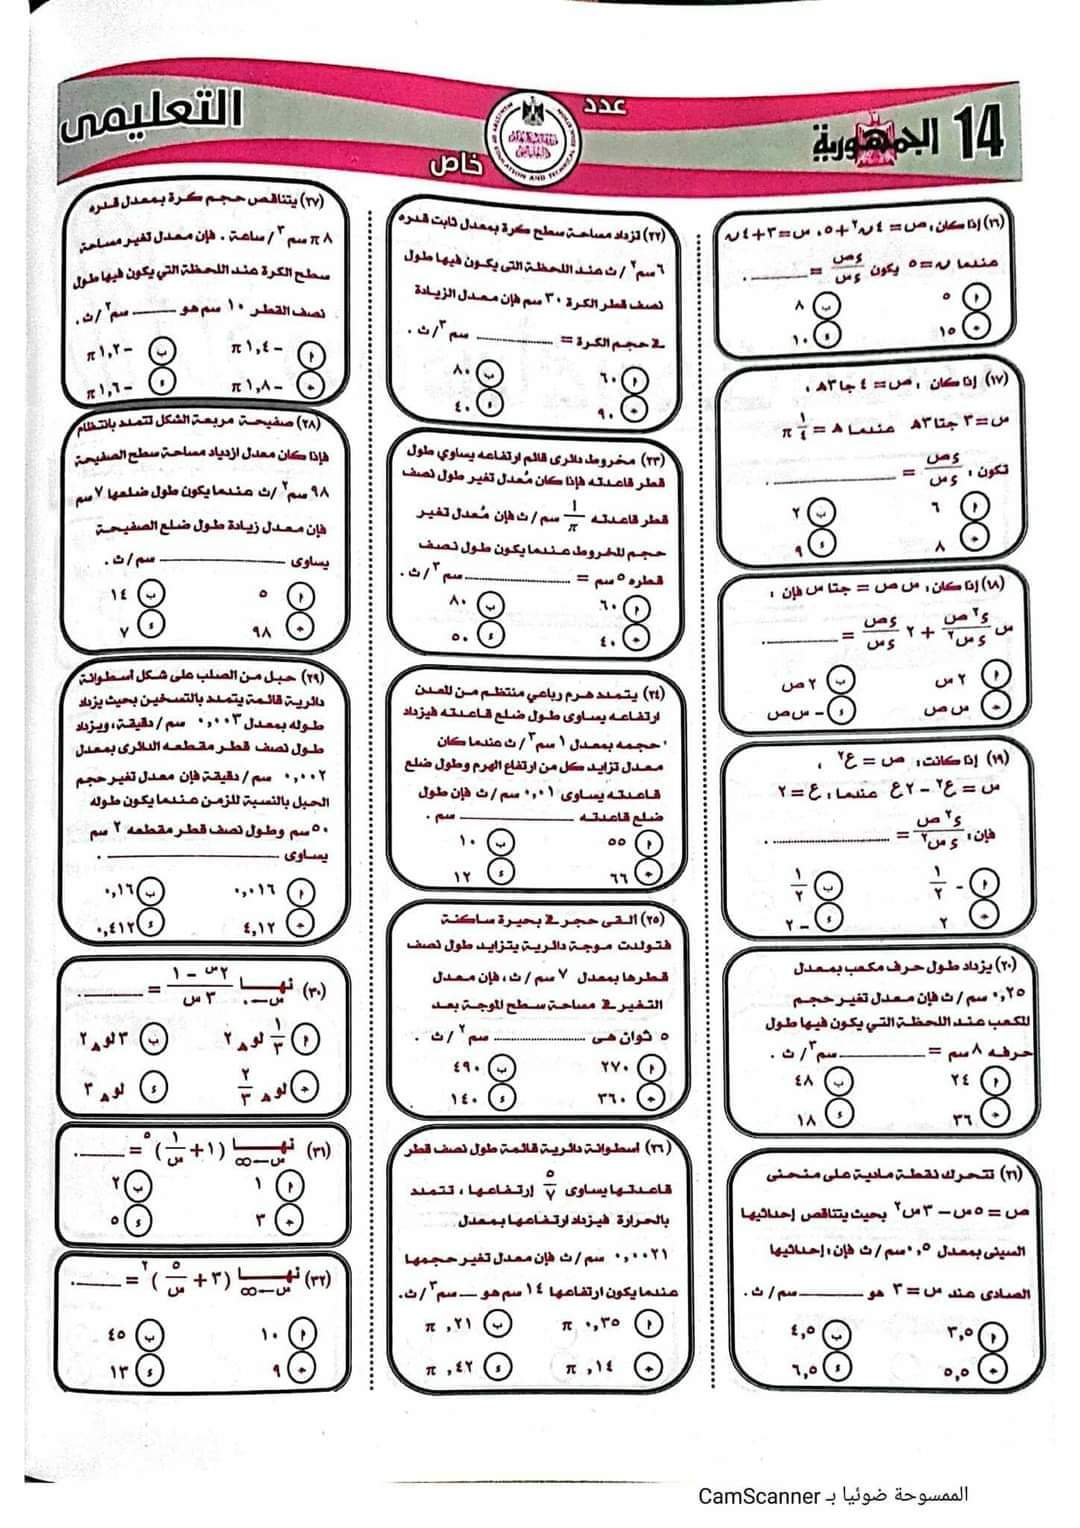 14 الجمهورية
عدد
خاص
التعليمى
(١٦) إذا كان : ص = ٤ن٢ + ٥ ، س = ٣ + ٤ن
عندما ن = ٥ يكون ءص/ءس = ـــــــ .
أ ٥ ب ٨
جـ ١٥ ء ١٠
(١٧) إذا كان : ص = ٤ جا ٣هـ ،
س = ٣ جتا ٣هـ عندما هـ = ١/٤ π
تكون : ءص/ءس = ـــــــ .
أ ٦ ب ٢
جـ ٨ ء ٩
(١٨) إذا كان : س ص = جتا س فإن :
س ء٢ص/ءس٢ + ٢ ءص/ءس = ـــــــ .
أ ٢ س ب ٢ ص
جـ س ص ء – س ص
(١٩) إذا كانت : ص = ع٢ ،
س = ع٢ – ٢ع عندما : ع = ٢
فإن : ء٢ص/ءس٢ = ـــــــ .
أ – ١/٢ ب ١/٢
جـ ٢ ء – ٢
(٢٠) يزداد طول حرف مكعب بمعدل
٠,٢٥ سم / ث فإن معدل تغير حجم
المكعب عند اللحظة التي يكون فيها طول
حرفه ٨ سم = ـــــــ سم٣/ ث .
أ ٢٤ ب ٤٨
جـ ٣٦ ء ١٨
(٢١) تتحرك نقطة مادية على منحنى
ص = ٥س – ٣س٢ بحيث يتناقص إحداثيها
السينى بمعدل ٠,٥ سم / ث فإن : إحداثيها
الصادى عند س = ٣ هو ـــــــ سم/ ث .
أ ٣,٥ ب ٤,٥
جـ ٥,٥ ء ٦,٥
(٢٢) تزداد مساحة سطح كرة بمعدل ثابت قدره
٦ سم٢ / ث عند اللحظة التى يكون فيها طول
نصف قطر الكرة ٣٠ سم فإن معدل الزيادة
في حجم الكرة = ـــــــ سم٣/ ث .
أ ٦٠ ب ٨٠
جـ ٩٠ ء ٤٠
(٢٣) مخروط دائرى قائم ارتفاعه يساوي طول
قطر قاعدته فإذا كان مُعدل تغير طول نصف
قطر قاعدته ١/π سم / ث فإن مُعدل تغير
حجم المخروط عندما يكون طول نصف
قطره ٥ سم = ـــــــ سم٣/ ث .
أ ٦٠ ب ٨٠
جـ ٤٠ ء ٥٠
(٢٤) يتمدد هرم رباعي منتظم من المعدن
ارتفاعه يساوى طول ضلع قاعدته فيزداد
حجمه بمعدل ١ سم٣/ ث عندما كان
معدل تزايد كل من ارتفاع الهرم وطول ضلع
قاعدته يساوى ٠,٠١ سم / ث فإن طول
ضلع قاعدته ـــــــ سم .
أ ٥٥ ب ١٠
جـ ٦٦ ء ١٢
(٢٥) ألقى حجر في بحيرة ساكنة
فتولدت موجة دائرية يتزايد طول نصف
قطرها بمعدل ٧ سم / ث ، فإن معدل
التغير في مساحة سطح الموجة بعد
٥ ثوان هى ـــــــ سم٢ / ث .
أ ٢٧٠ ب ٤٩٠
جـ ٣٦٠ ء ١٤٠
(٢٦) أسطوانة دائرية قائمة طول نصف قطر
قاعدتها يساوى ٥/٧ إرتفاعها ، تتمدد
بالحرارة فيزداد ارتفاعها بمعدل
٠,٠٠٢١ سم / ث فإن معدل تغير حجمها
عندما يكون ارتفاعها ١٤ سم هو ـــــ سم٣/ ث.
أ ٠,٣٥ π ب ٠,٢١ π
جـ ٠,١٤ π ء ٠,٤٢ π
(٢٧) يتناقص حجم كرة بمعدل قدره
٨ π سم٣ / ساعة . فإن معدل تغير مساحة
سطح الكرة عند اللحظة التي يكون فيها طول
نصف القطر ١٠ سم هو ـــــ سم٢ /ث .
أ – ١,٤ π ب – ١,٢ π
جـ – ١,٨ π ء – ١,٦ π
(٢٨) صفيحة مربعة الشكل تتمدد بانتظام
فإذا كان معدل ازدياد مساحة سطح الصفيحة
٩٨ سم٢ /ث عندما يكون طول ضلعها ٧ سم
فإن معدل زيادة طول ضلع الصفيحة
يساوى ـــــــ سم / ث .
أ ٥ ب ١٤
جـ ٩٨ ء ٧
(٢٩) حبل من الصلب على شكل أسطوانة
دائرية قائمة يتمدد بالتسخين بحيث يزداد
طوله بمعدل ٠,٠٠٣ سم / دقيقة ، ويزداد
طول نصف قطر مقطعه الدائرى بمعدل
٠,٠٠٢ سم / دقيقة فإن معدل تغير حجم
الحبل بالنسبة للزمن عندما يكون طوله
٥٠ سم وطول نصف قطر مقطعه ٢ سم
يساوى ـــــــ .
أ ٠,٠١٦ ب ٠,١٦
جـ ٤,١٢ ء ٠,٤١٢
(٣٠) نهــا س←٠ (٢س – ١)/(٣ س) = ـــــــ .
أ ١/٣ لوهـ ٢ ب ٣ لوهـ ٢
جـ لوهـ ٢/٣ ء لوهـ ٣
(٣١) نهــا س←∞ (١ + ١/س)٥ = ـــــــ .
أ ١ ب ٢
جـ ٣ ء ٥
(٣٢) نهــا س←∞ (٣ + ٥/س)٢ = ـــــــ .
أ ١٠ ب ٤٥
جـ ٩ ء ١٣
الممسوحة ضوئيا بـ CamScanner